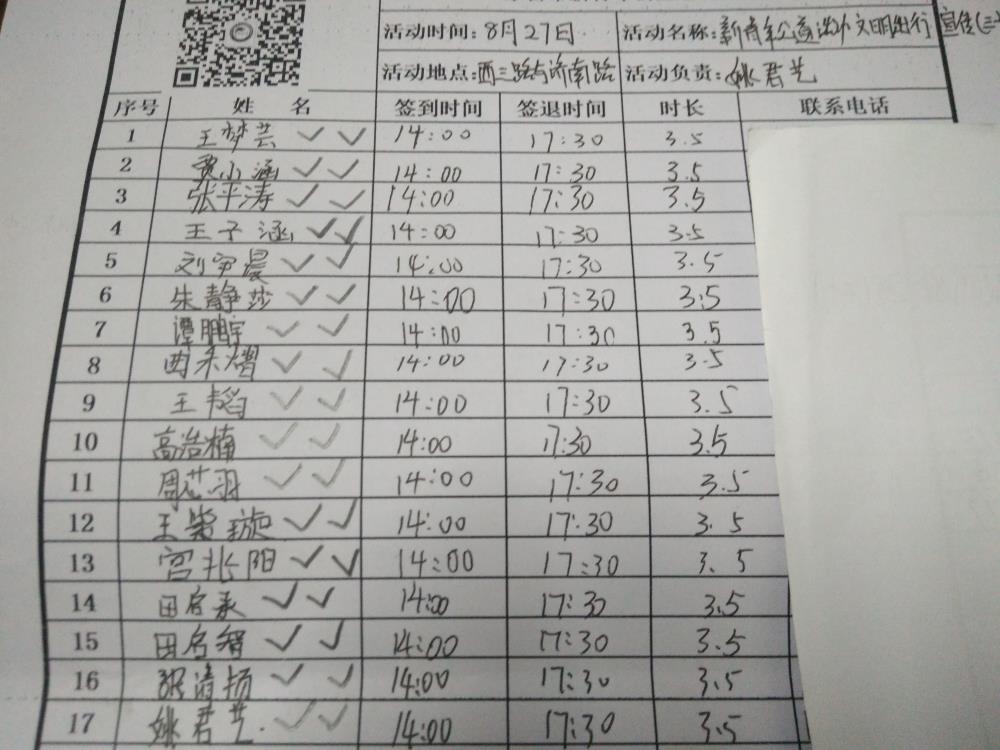 活动时间: 8月27日 活动名称: 新青年公益活动文明出行宣传(三
活动地点: 西三路与济南路 活动负责: 姚君艺
序号 姓 名 签到时间 签退时间 时长 联系电话
1 王梦芸 ✓ ✓ 14:00 17:30 3.5
2 贾小涵 ✓ ✓ 14:00 17:30 3.5
3 张平涛 ✓ ✓ 14:00 17:30 3.5
4 王子涵 ✓ ✓ 14:00 17:30 3.5
5 刘宇晨 ✓ ✓ 14:00 17:30 3.5
6 朱静莎 ✓ ✓ 14:00 17:30 3.5
7 谭鹏宇 ✓ ✓ 14:00 17:30 3.5
8 ✓ ✓ 14:00 17:30 3.5
9 王韬 ✓ ✓ 14:00 17:30 3.5
10 高浩楠 ✓ ✓ 14:00 17:30 3.5
11 周芯羽 ✓ ✓ 14:00 17:30 3.5
12 王紫璇 ✓ ✓ 14:00 17:30 3.5
13 宫兆阳 ✓ ✓ 14:00 17:30 3.5
14 田名承 ✓ ✓ 14:00 17:30 3.5
15 田名智 ✓ ✓ 14:00 17:30 3.5
16 张清扬 ✓ ✓ 14:00 17:30 3.5
17 姚君艺 ✓ ✓ 14:00 17:30 3.5